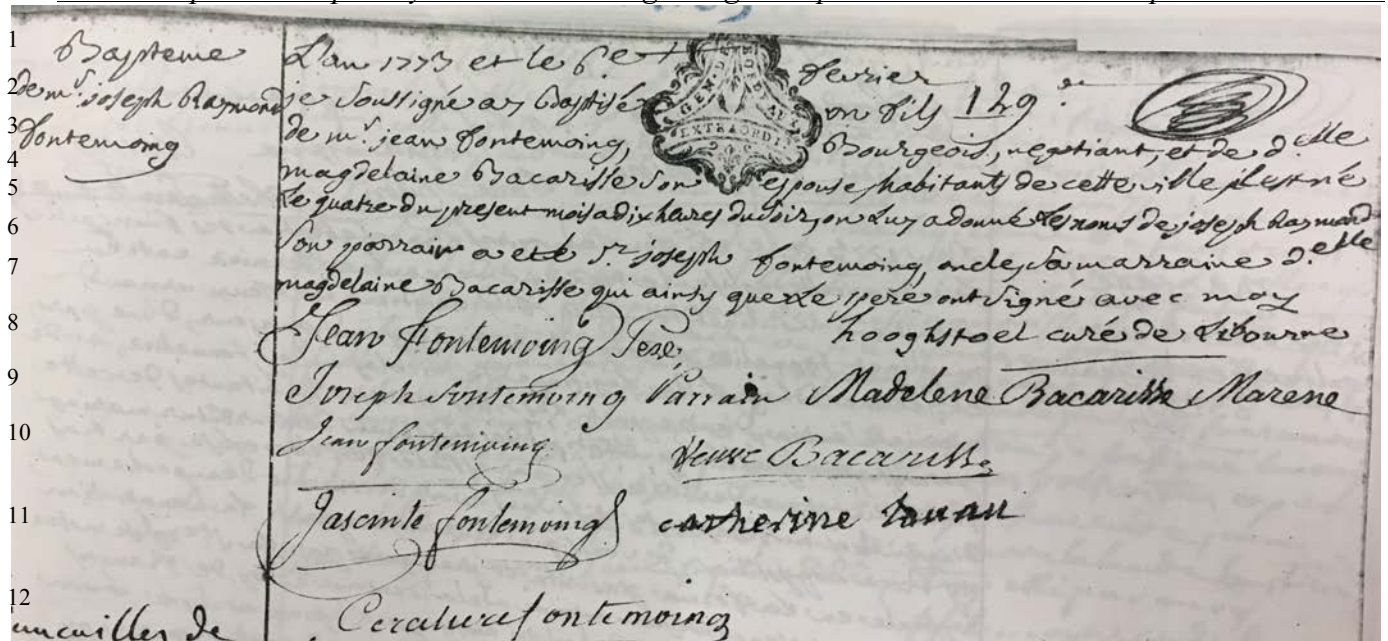 1
Bapteme
2
de mr. joseph Raymond
3
fontemoing
4
5
6
7
8
9
10
11
12
L'an 1773 et le 6e fevrier
je Soussigné ay Baptisé un fils 129
de mr. jean fontemoing, Bourgeois, negotiant, et de d.elle
magdelaine Bacarisse Son epouse, habitants de cette ville il est né
le quatre du present mois a dix heures du soir, on luy a donné les noms de joseph Raymond
Son parrain a eté Sr. joseph fontemoing, oncle, Sa marraine d.elle
magdelaine Bacarisse qui ainsy que le pere ont signé avec moy
hooghstoel curé de Libourne
Jean fontemoing Pere
Joseph fontemoing Parrain Madelene Bacarisse Marene
Jean fontemoing veuve Bacarisse
Jascinte fontemoing catherine
fontemoing
GEN. DE
EXTRAORD
de